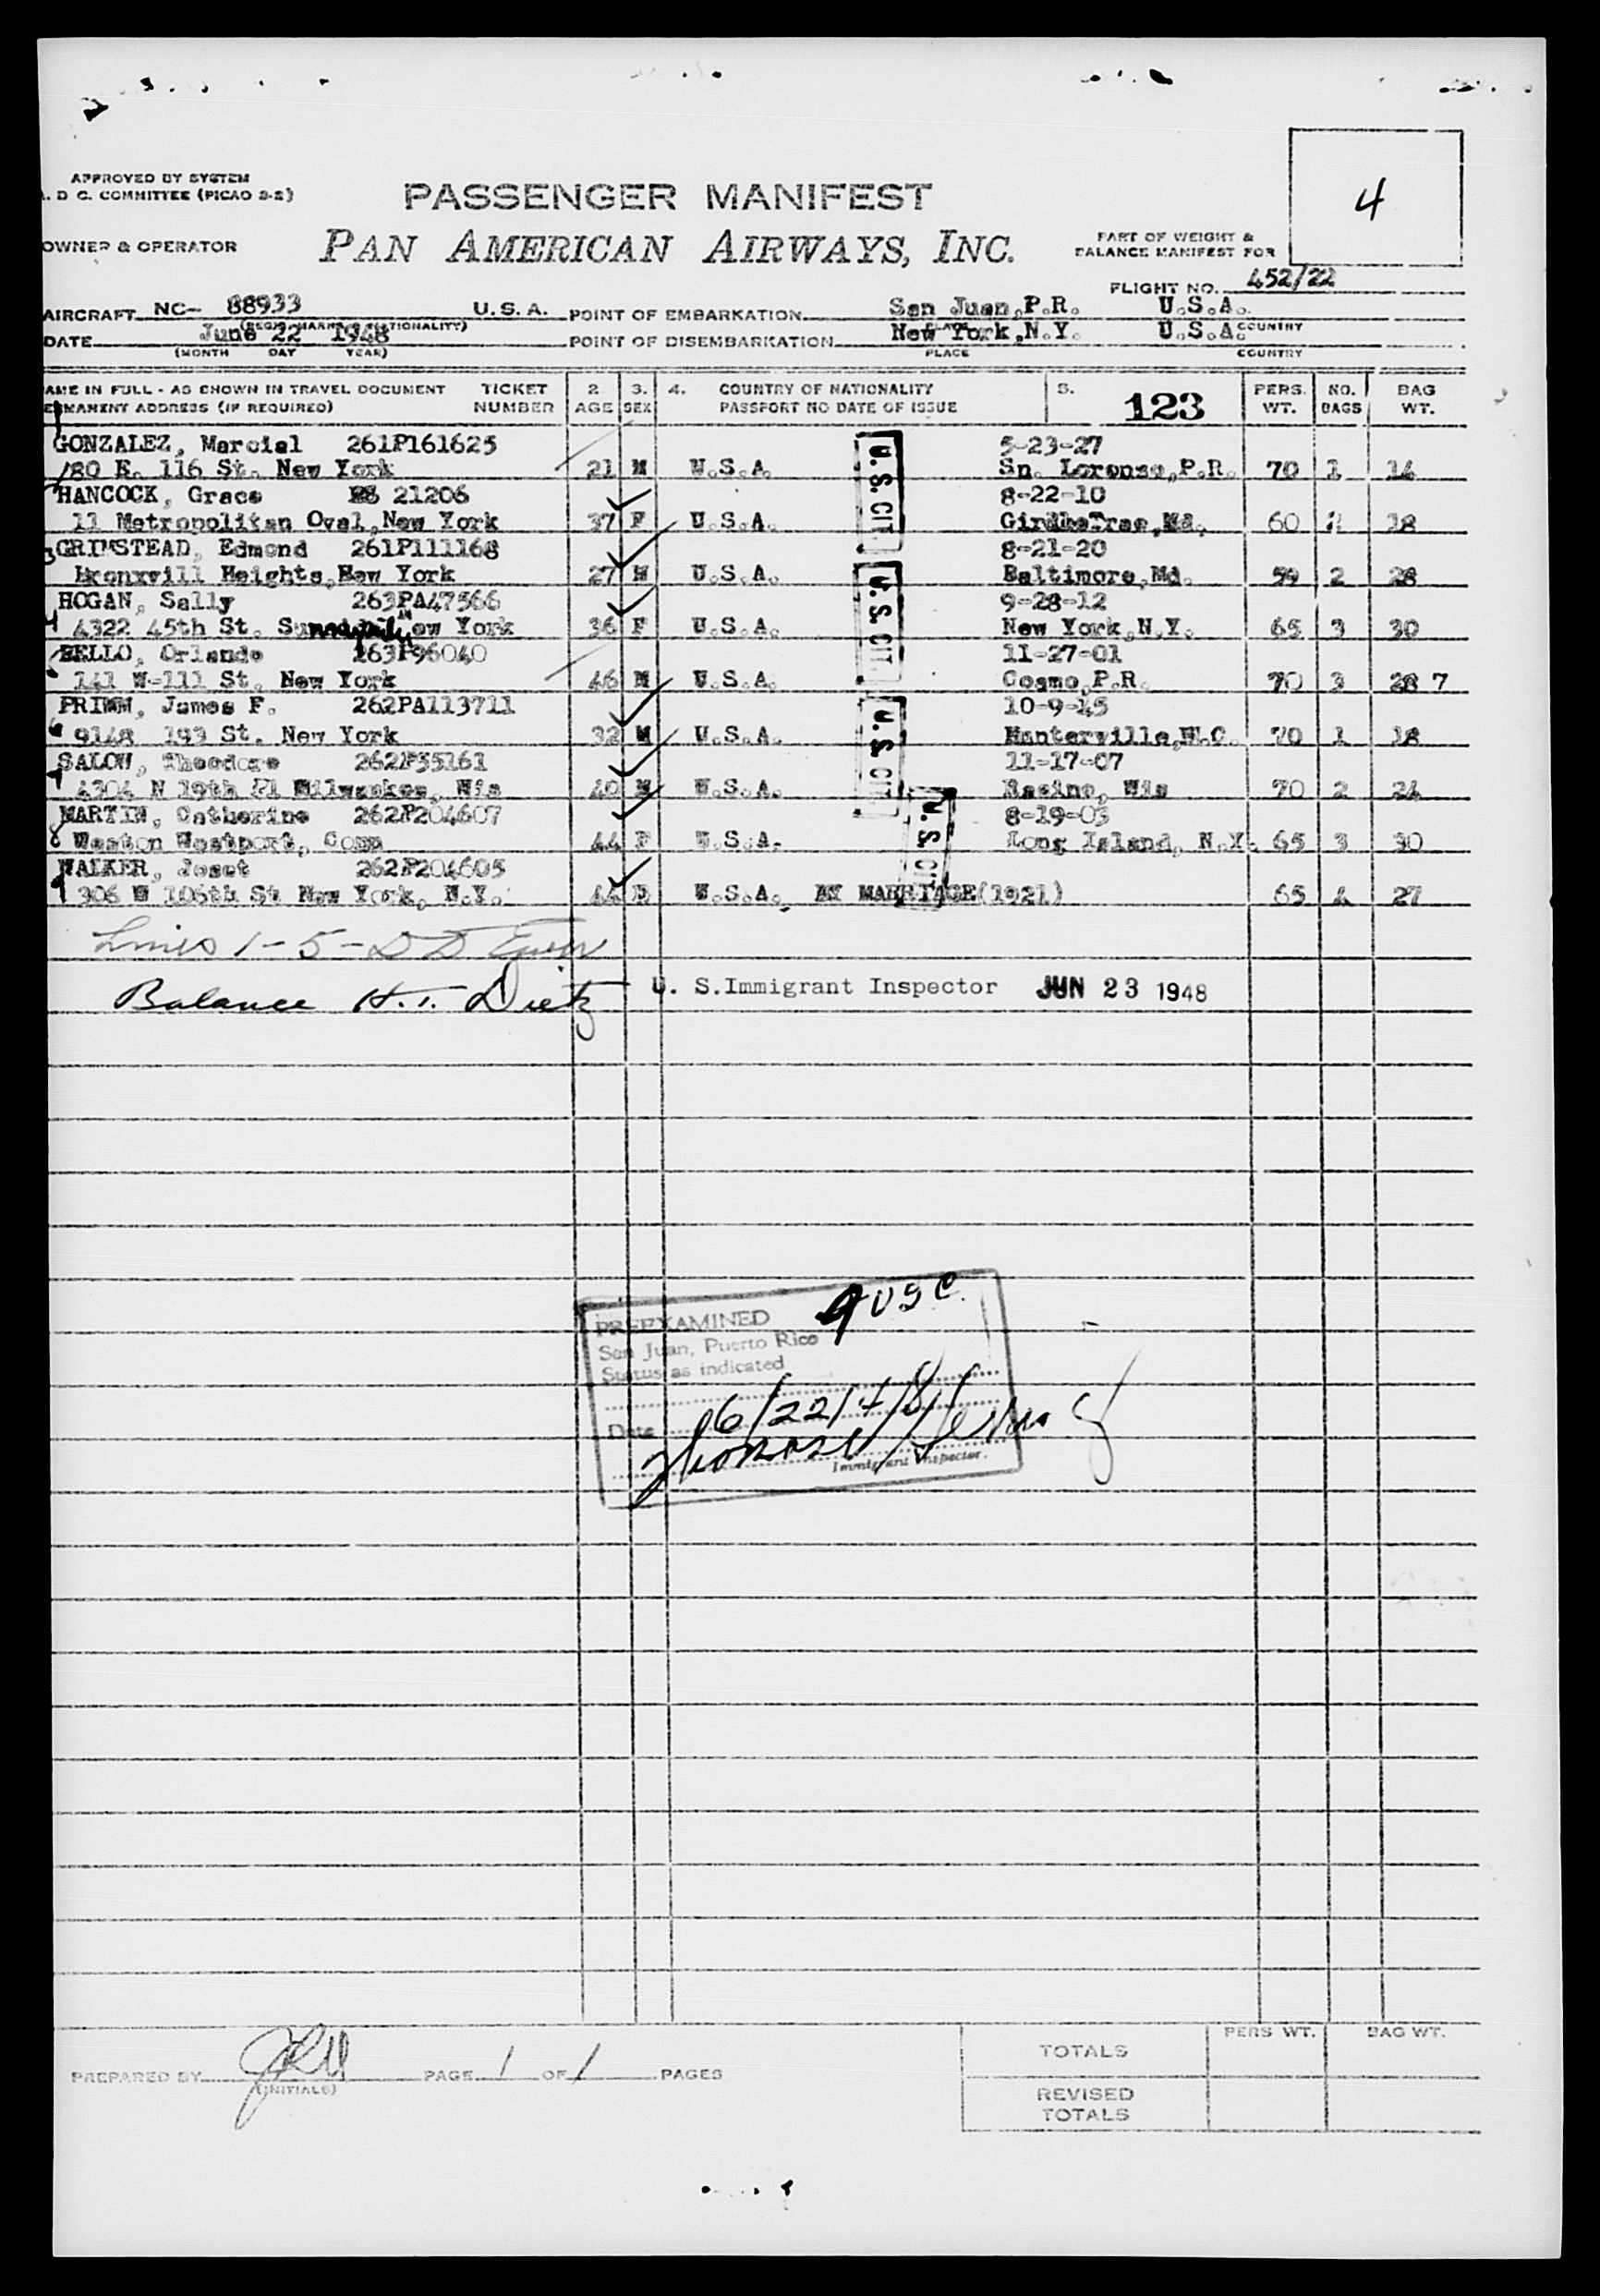 APPROVED BY SYSTEM
. D C. COMMITTEE (PICAO 2-2)
4
PASSENGER MANIFEST
OWNER & OPERATOR
PAN AMERICAN AIRWAYS, INC.
PART OF WEIGHT &
BALANCE MANIFEST FOR
FLIGHT NO. 452/22
AIRCRAFT NC- 88933 U. S. A. POINT OF EMBARKATION San Juan,P.R. U.S.A.
DATE June 22 1948 POINT OF DISEMBARKATION New York,N.Y. U.S.A. COUNTRY
(MONTH DAY YEAR) PLACE COUNTRY
AME IN FULL - AS SHOWN IN TRAVEL DOCUMENT TICKET 2. 3. 4. COUNTRY OF NATIONALITY 5. PERS. NO. BAG
ERMANENT ADDRESS (IF REQUIRED) NUMBER AGE SEX PASSPORT NO DATE OF ISSUE 123 WT. BAGS WT.
GONZALEZ, Marcial 261P161625 5-23-27
180 E. 116 St. New York 21 M U.S.A. Sn. Lorenzo,P.R. 70 1 14
HANCOCK, Grace 21206 8-22-10
11 Metropolitan Oval,New York 37 F U.S.A. U.S. CIT. 60 18
3 GRIMSTEAD, Edmond 261P111168 8-21-20
Bronxvill Heights,New York 27 M U.S.A. Baltimore,Md. 59 2 28
HOGAN, Sally 263PA47566 9-28-12
4 4322 45th St. ew York 36 F U.S.A. U.S. CIT. New York,N.Y. 65 3 30
BELLO, Orlando 263P96040 11-27-01
141 W-111 St. New York 46 M U.S.A. Coamo,P.R. 70 3 28 7
PRIMM, James F. 262PA113711 10-9-15
6 9148 193 St. New York 32 M U.S.A. U.S. CIT. 70 1 18
SALOW, Theodore 262P35161 11-17-07
7 4304 N 19th Pl Milwaukee, Wis 40 M U.S.A. Racine, Wis 70 2 24
MARTIN, Catherine 262P204607 8-19-03
8 Weston Westport, Conn 44 F U.S.A. U.S. CIT. Long Island, N.Y. 65 3 30
WALKER, Joset 262P204605
9 306 W 106th St New York, N.Y. 44 U.S.A. BY MARRIAGE(1921) 65 4 27
Lines 1-5-
Balance H. T. Dietz U. S.Immigrant Inspector JUN 23 1948
9 USC
PREEXAMINED
San Juan, Puerto Rico
Status as indicated
Date 6/22/48
Immigrant Inspector.
PERS WT. BAG WT.
TOTALS
PREPARED BY (INITIALS) PAGE 1 OF 1 PAGES
REVISED
TOTALS